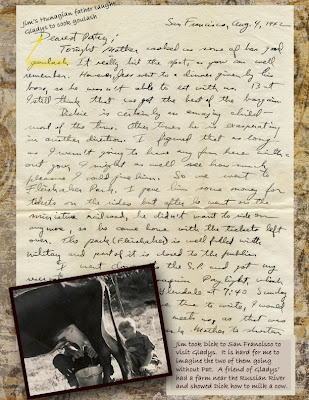 Jim's Hunagian father taught
Gladys to cook goulash
San Francisco, Aug. 4, 1942
Dearest Patsy;
Tonight Mother cooked us some of her good
goulash. It really hit the spot, as you can well
remember. However, Jess went to a dinner given by his
boss, so he was not able to eat with us. But
I still think that we got the best of the bargain.
Dickie is certainly an amazing child
most of the time. Other times he is exasperating
in another direction. I figured that as long
I wasn't going to have my fun here with-
out you, I might as well see how much
pleasure I could give him. So we went to
Fleishaker Park. I gave him some money for
tickets on the rides but after he went on the
miniature railroad, he didn't want to ride on
any more, so he came home with the tickets left
over. The park (Fleishaker) is well filled with
military and part of it is closed to the public.
I went down to the S.P. and got my
Daylight, which
Glendale at 7:40 Sunday
time to write, I would
Jim took Dick to San Francisco to
visit Gladys. It is hard for me to
imagine the two of them going
without Pat. A friend of Gladys'
had a farm near the Russian River
and showed Dick how to milk a cow.